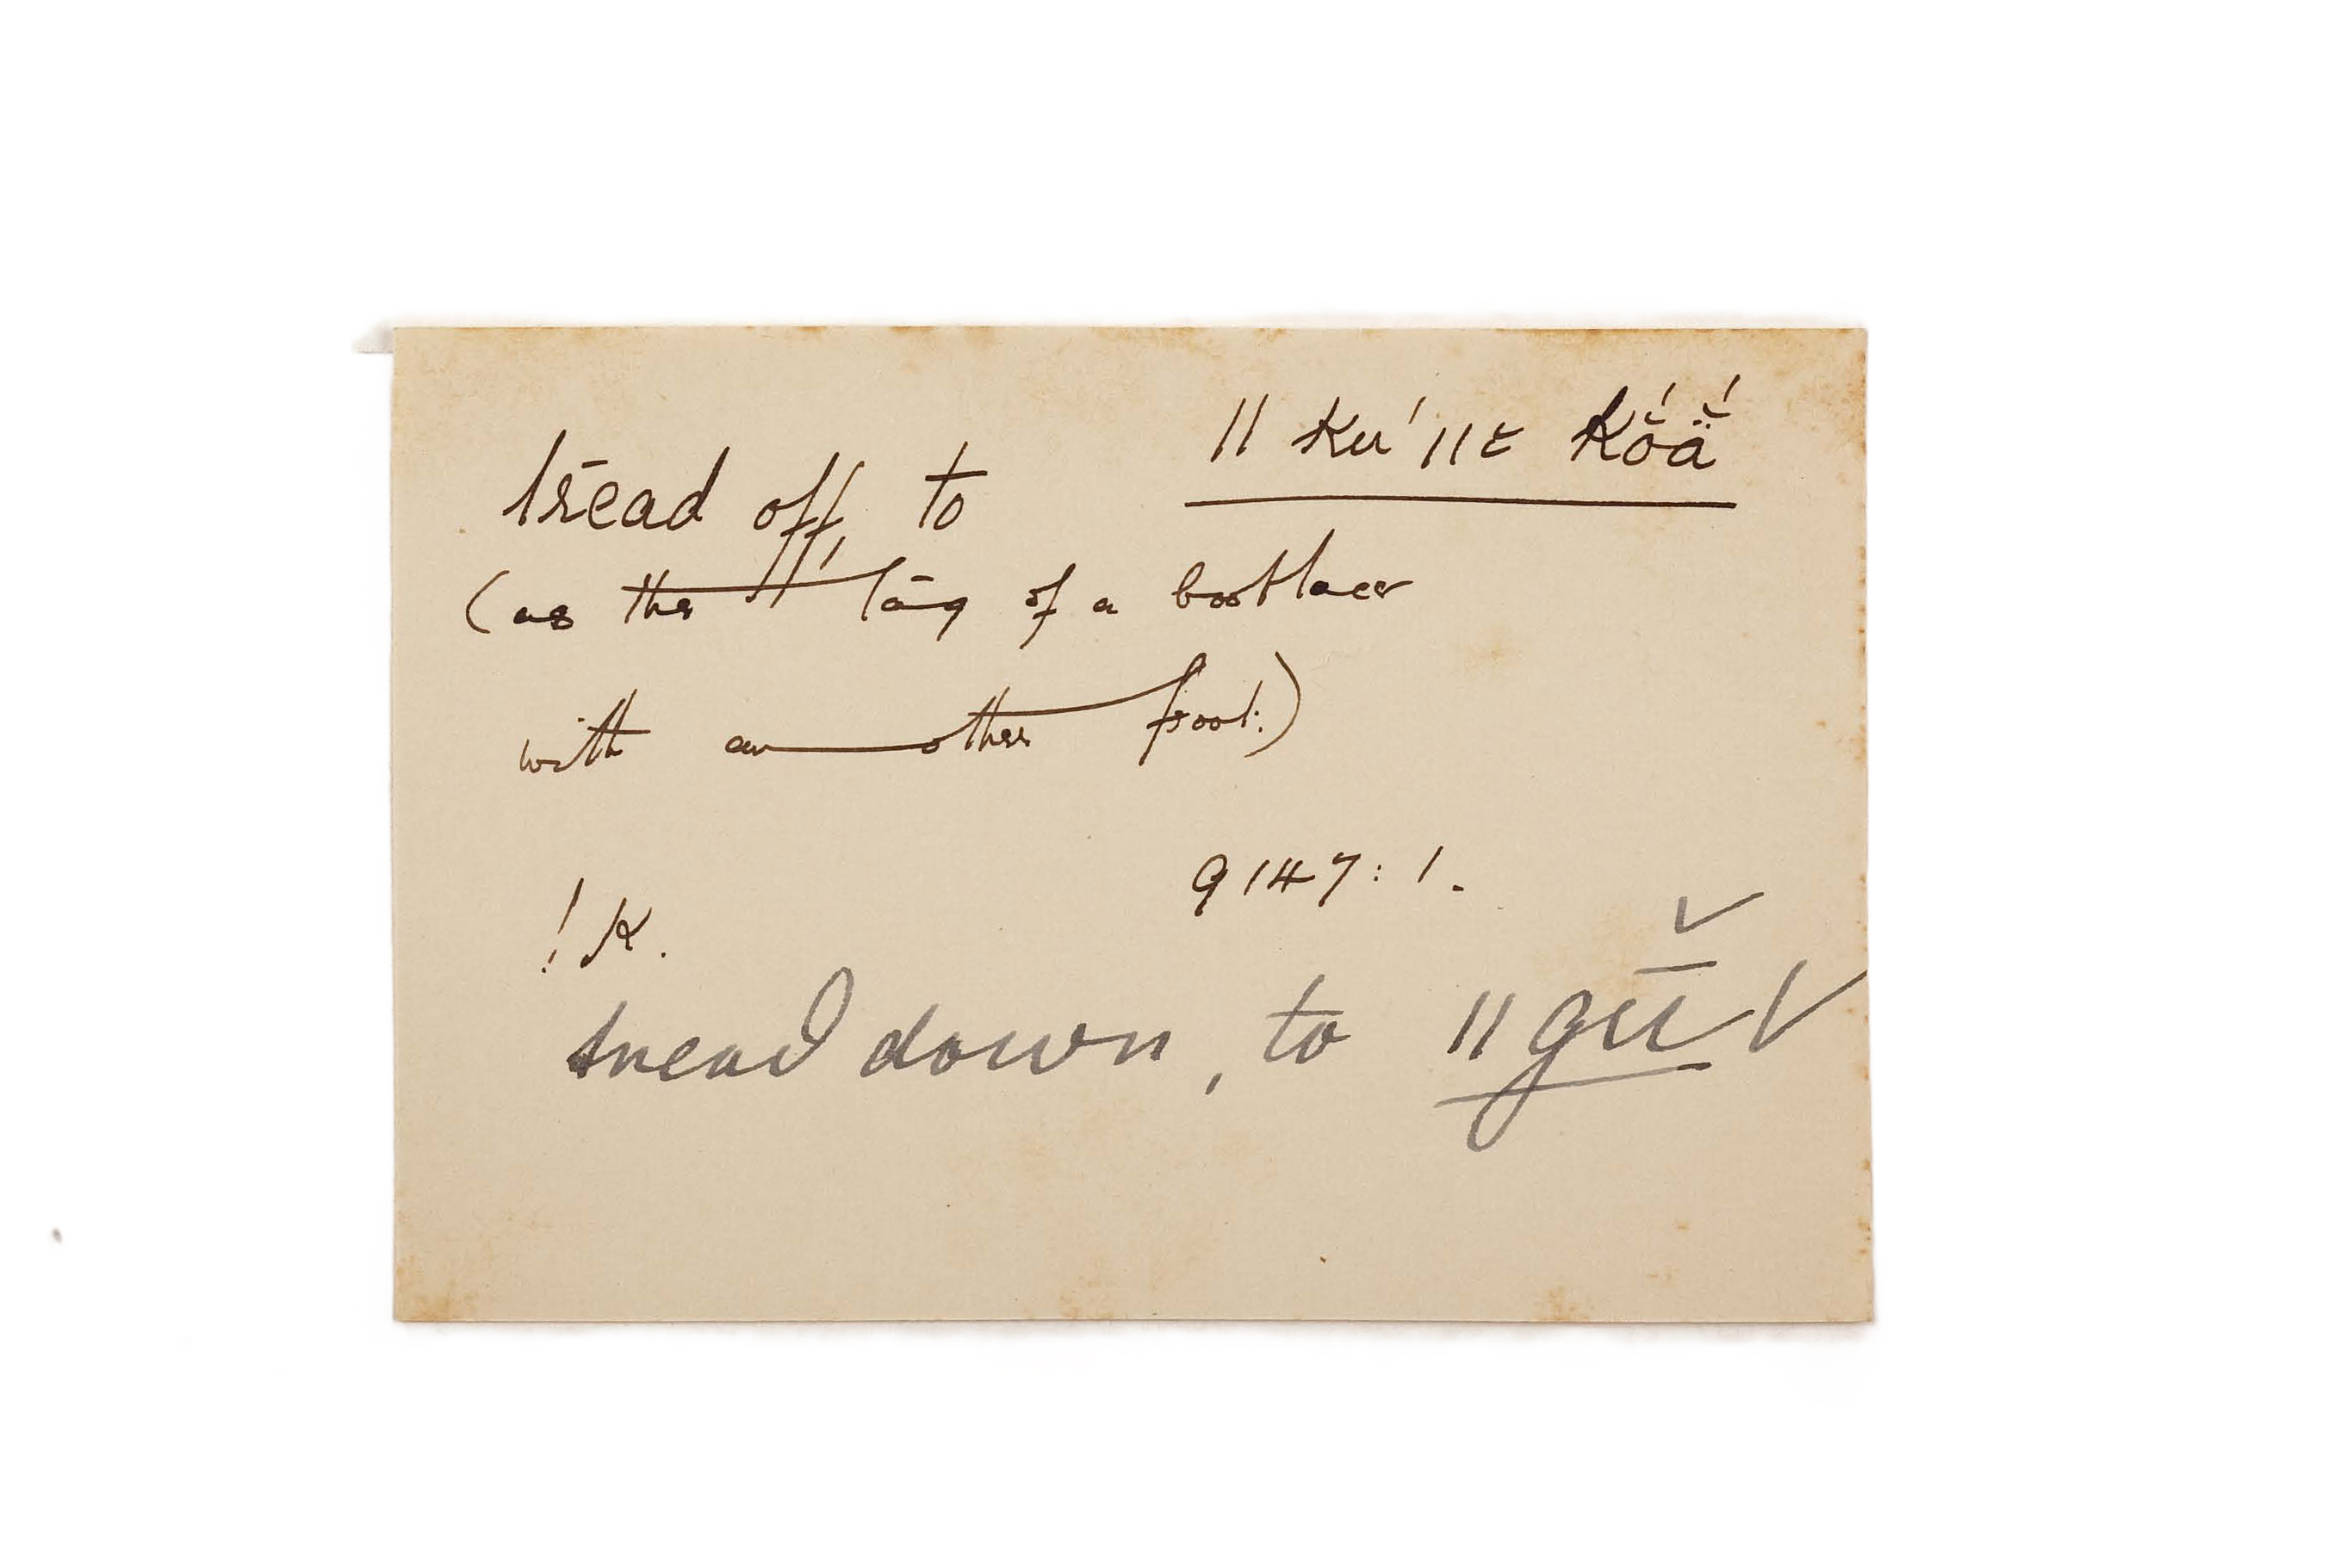 tread off, to ǁku'ǁɛ kŏ́ä̆́
(as the tag of a bootlace
with another foot.)
9147:1.
!K.
tread down, to ǁgū